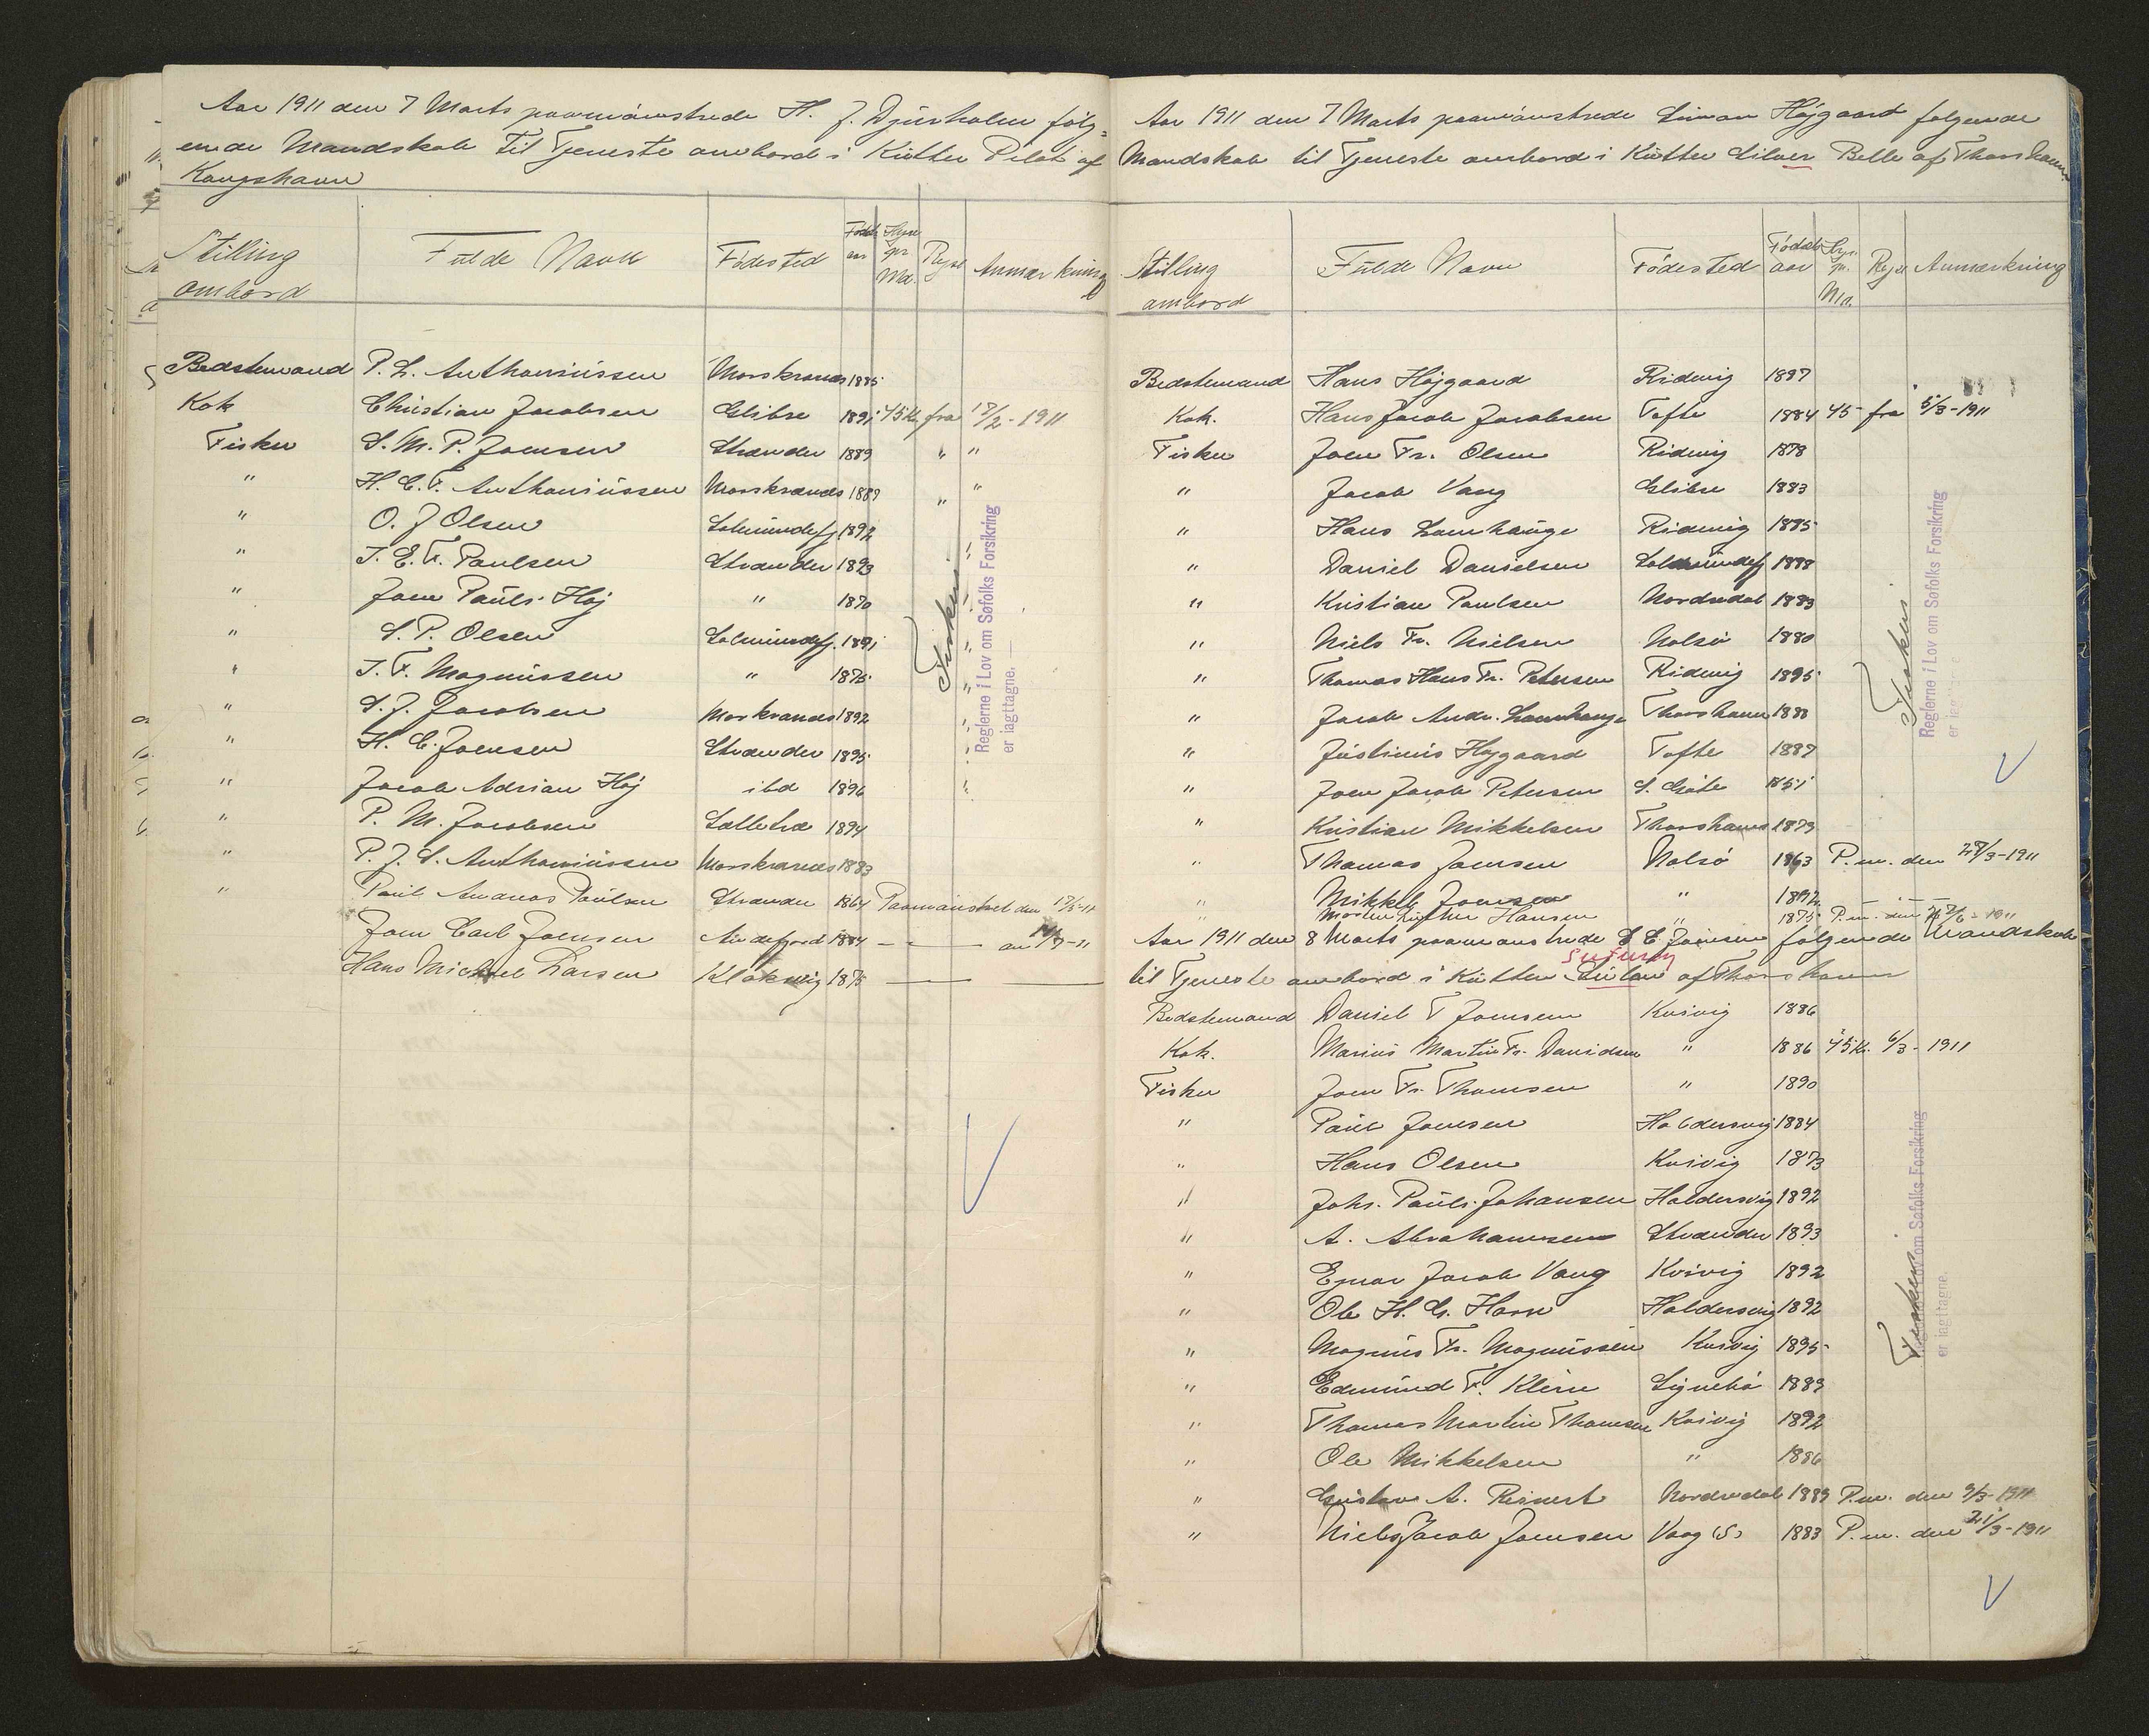 Aar 1911 den 7 Marts paamønstrede H. J. Djurholm følg=
ende Mandskab til Tjeneste ombord i Kutter Pilot af
Kongshavn
Stilling ombord Fulde Navn Fødested Føds. aar Hyre pr. Md. Rejse Anmærkning
Bedstemand P. L. Anthoniussen Morskranes 1885
Kok Christian Jacobsen Glibre 1891 45 Kr. fra 17/2-1911
Fisker S. M. P. Joensen Strænder 1889 " "
" H. C. F. Anthoniussen Morskranes 1889 " "
" O. J Olsen Solmundefj 1892
" J. E. F. Paulsen Strænder 1893
" Joen Pauli Høj " 1870
" S. P. Olsen Solmundefj. 1891
" J. F. Magnussen " 1875
" S. J. Jacobsen Morkranes 1892
" H. C. Joensen Strænder 1895
" Jacob Adrian Høj ibd 1896
" P. M. Jacobsen Saltetræ 1894
" P. J. S. Anthoniussen Morskranes 1883
" Paul Andreas Poulsen Strænder 1864 Paamønstret den 17/3-11
Joen Carl Joensen Andefjord 1884 — — an
Hans Michael Larsen Klaksvig 1875 — —
Fiskeri
Reglerne i Lov om Søfolks Forsikring
er iagttagne.
Aar 1911 den 7 Marts paamønstrede Simon Højgaard følgende
Mandskab til Tjeneste ombord i Kutter Silver Belle af Thorshavn
Stilling ombord Fulde Navn Fødested Føds. aar Hyre pr. Md. Rejse Anmærkning
Bedstemand Hans Højgaard Ridevig 1887
Kok. Hans Jacob Jacobsen Tofte 1884 45 fra 5/3-1911
Fisker Joen Fr. Olsen Ridevig 1878
" Jacob Vang Glibre 1883
" Hans Lamhauge Ridevig 1885
" Daniel Danielsen Solmundefj 1888
" Kristian Poulsen Nordredal 1889
" Niels Fr. Nielsen Nolsø 1880
" Thomas Hans Fr. Petersen Ridevig 1895
" Jacob Andr. Lamhauge Thorshavn 1888
" Justinus Højgaard Tofte 1887
" Joen Jacob Petersen S. Gøte 1851
" Kristian Mikkelsen Thorshavn 1879
" Thomas Joensen Nolsø 1863 P.m. den 28/3-1911
" Mikkel Joensen " 1892 — —
Morten Luther Hansen " 1875 P.m. den
Fiskeri
Reglerne i Lov om Søfolks Forsikring
er iagttagne
Aar 1911 den 8 Marts paamønstrede E E Joensen følgende Mandskab
Suduroy
til Tjeneste ombord i Kutter Sulan af Thorshavn
Bedstemand Daniel T Joensen Kvivig 1886
Kok. Marius Martin Fr. Davidsen " 1886 45 Kr. 6/3-1911
Fisker Joen Fr. Thomsen " 1890
" Paul Joensen Haldersvig 1884
" Hans Olsen Kvivig 1873
" Johs. Pauli Johansen Haldersvig 1892
" A. Abrahamsen Strænder 1893
" Ejnar Jacob Vang Kvivig 1892
" Ole H. G. Horn Haldersvig 1892
" Magnus Fr. Magnussen Kvivig 1895
" Edmund F. Klein Signebø 1889
" Thomas Martin Thomsen Kvivig 1892
" Ole Mikkelsen " 1886
" Gustav A. Reinert Nordredal 1889 P.m. den 9/3-1911
" Niels Jacob Joensen Vaag (S) 1883 P.m. den 21/3-1911
Fiskeri
om Søfolks Forsikring
er iagttagne.